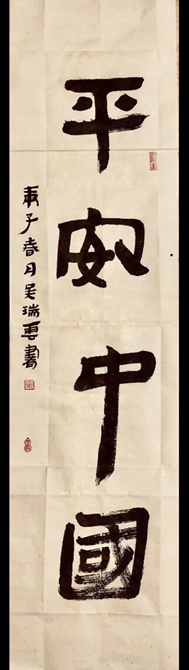 平安中國
庚子春月吴瑞雲書